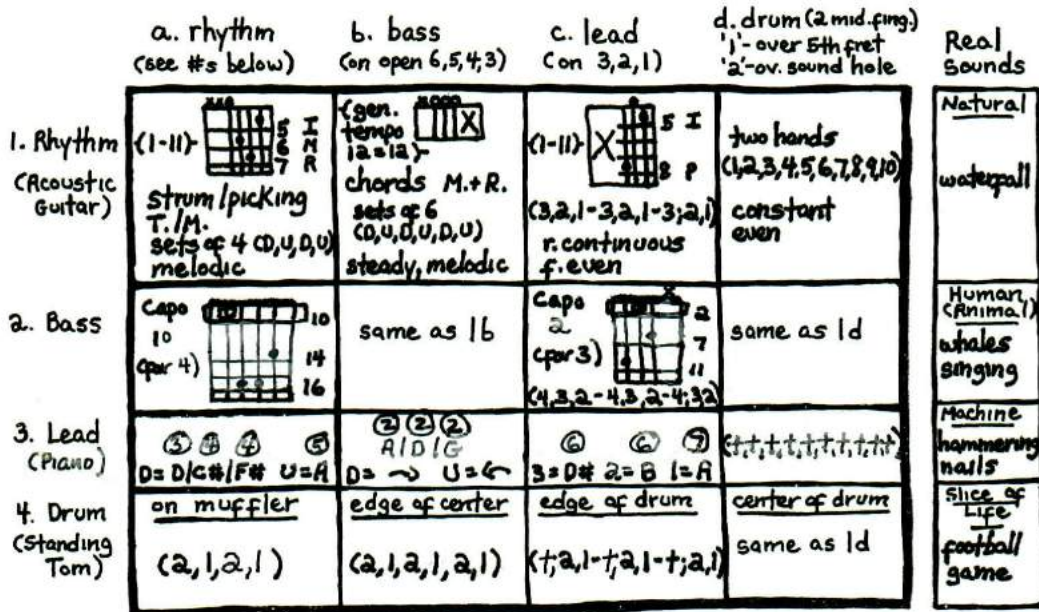 a. rhythm
(see #s below)
b. bass
(on open 6,5,4,3)
c. lead
(on 3,2,1)
d. drum (2 mid.fing.)
'1'- over 5th fret
'2'-ov. sound hole
Real
Sounds
1. Rhythm
(Acoustic
Guitar)
(1-11)
xxo
5 I
6 M
7 R
strum/picking
T./M.
sets of 4 (D,U,D,U)
melodic
(gen.
tempo
12=12)
xooo
X
chords M.+R.
sets of 6
(D,U,D,U,D,U)
steady, melodic
(1-11)
X
o
5 I
8 P
(3,2,1-3,2,1-3;2,1)
r. continuous
f. even
two hands
(1,2,3,4,5,6,7,8,9,10)
constant
even
Natural
waterfall
2. Bass
Capo
10
(for 4)
10
14
16
same as 1b
Capo
2
(for 3)
x
2
7
11
(4,3,2-4,3,2-4;3,2)
same as 1d
Human
(Animal)
whales
singing
3. Lead
(Piano)
③ ④ ④ ⑤
D=D/C#/F# U=A
② ② ②
A/D/G
D= → U= ←
⑥ ⑥ ⑦
3=D# 2=B 1=A
Machine
hammering
nails
4. Drum
(Standing
Tom)
on muffler
(2,1,2,1)
edge of center
(2,1,2,1,2,1)
edge of drum
(†,2,1-†,2,1-†;2,1)
center of drum
same as 1d
Slice of
Life
football
game